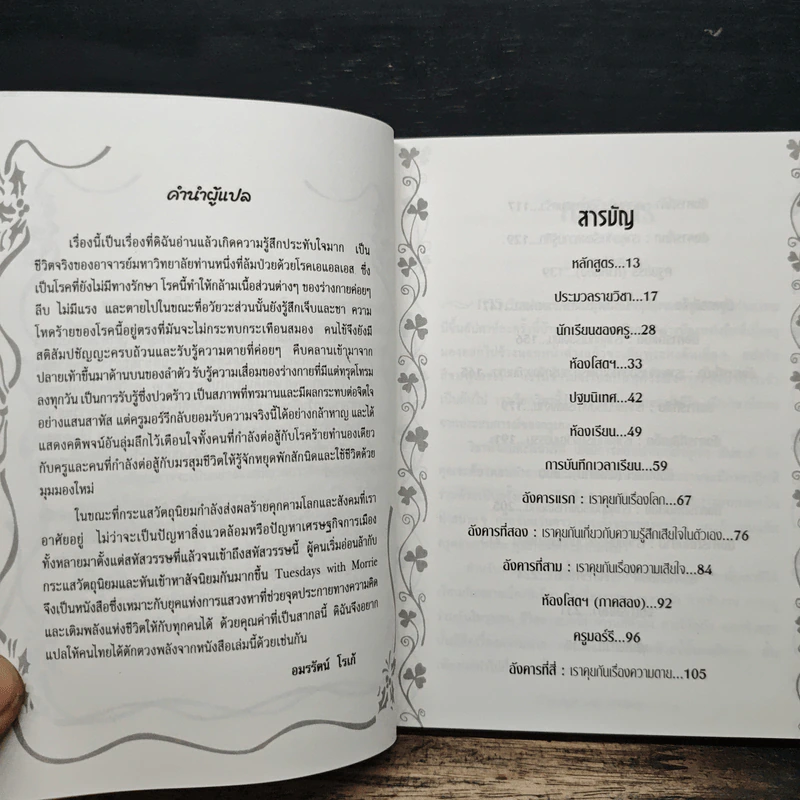 คำนำผู้แปล
เรื่องนี้เป็นเรื่องที่ดิฉันอ่านแล้วเกิดความรู้สึกประทับใจมาก เป็น
ชีวิตจริงของอาจารย์มหาวิทยาลัยท่านหนึ่งที่ล้มป่วยด้วยโรคเอแอลเอส ซึ่ง
เป็นโรคที่ยังไม่มีทางรักษา โรคนี้ทำให้กล้ามเนื้อส่วนต่างๆ ของร่างกายค่อยๆ
ลีบ ไม่มีแรง และตายไปในขณะที่อวัยวะส่วนนั้นยังรู้สึกเจ็บและชา ความ
โหดร้ายของโรคนี้อยู่ตรงที่มันจะไม่กระทบกระเทือนสมอง คนไข้จึงยังมี
สติสัมปชัญญะครบถ้วนและรับรู้ความตายที่ค่อยๆ คืบคลานเข้ามาจาก
ปลายเท้าขึ้นมาด้านบนของลำตัว รับรู้ความเสื่อมของร่างกายที่มีแต่ทรุดโทรม
ลงทุกวัน เป็นการรับรู้ซึ่งปวดร้าว เป็นสภาพที่ทรมานและมีผลกระทบต่อจิตใจ
อย่างแสนสาหัส แต่ครูมอร์รีกลับยอมรับความจริงนี้ได้อย่างกล้าหาญ และได้
แสดงคติพจน์อันลุ่มลึกไว้เตือนใจทั้งคนที่กำลังต่อสู้กับโรคร้ายทำนองเดียว
กับครูและคนที่กำลังต่อสู้กับมรสุมชีวิตให้รู้จักหยุดพักสักนิดและใช้ชีวิตด้วย
มุมมองใหม่
ในขณะที่กระแสวัตถุนิยมกำลังส่งผลร้ายคุกคามโลกและสังคมที่เรา
อาศัยอยู่ ไม่ว่าจะเป็นปัญหาสิ่งแวดล้อมหรือปัญหาเศรษฐกิจการเมือง
ทั้งหลายมาตั้งแต่สหัสวรรษที่แล้วจนเข้าถึงสหัสวรรษนี้ ผู้คนเริ่มอ่อนล้ากับ
กระแสวัตถุนิยมและหันเข้าหาสัจนิยมกันมากขึ้น Tuesdays with Morrie
จึงเป็นหนังสือซึ่งเหมาะกับยุคแห่งการแสวงหาที่ช่วยจุดประกายทางความคิด
และเติมพลังแห่งชีวิตให้กับทุกคนได้ ด้วยคุณค่าที่เป็นสากลนี้ ดิฉันจึงอยาก
แปลให้คนไทยได้ตักตวงพลังจากหนังสือเล่มนี้ด้วยเช่นกัน
อมรรัตน์ โรเก้
สารบัญ
หลักสูตร...13
ประมวลรายวิชา...17
นักเรียนของครู...28
ห้องโสตฯ...33
ปฐมนิเทศ...42
ห้องเรียน...49
การบันทึกเวลาเรียน...59
อังคารแรก : เราคุยกันเรื่องโลก...67
อังคารที่สอง : เราคุยกันเกี่ยวกับความรู้สึกเสียใจในตัวเอง...76
อังคารที่สาม : เราคุยกันเรื่องความเสียใจ...84
ห้องโสตฯ (ภาคสอง)...92
ครูมอร์รี...96
อังคารที่สี่ : เราคุยกันเรื่องความตาย...105